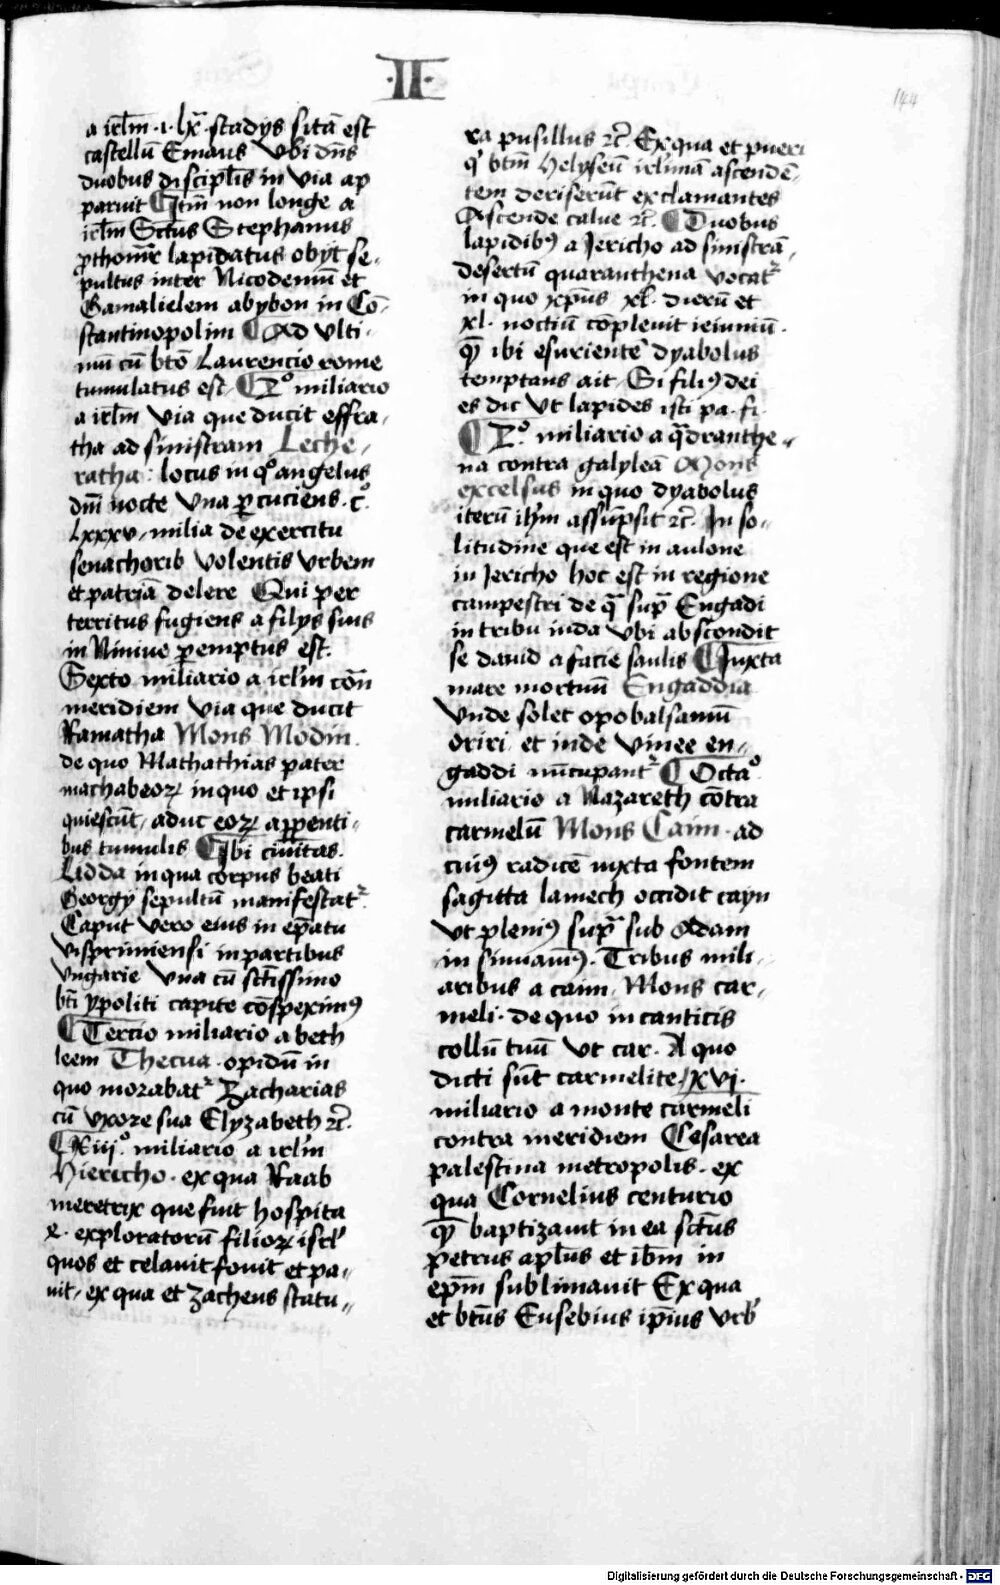 ·II·
144
a irl̄m ·i· lx̄ stadijs sitā est
castellū Emaus Vbi dn̄s
duobus discipl̄is in via ap
paruit ¶ Itm̄ non longe a
irl̄m Sctūs Stephanus
ꝓthomr̄ lapidatus obijt se-
pultus inter Nicodemū et
Gamalielem abybon in Cō-
stantinopolim ¶ Ad Vlti-
mū cū btō Laurencio rome
tumulatus est ¶ miliario
a irl̄m Via que ducit effra-
tha ad sinistram Leche-
ratha: locus in qͦ angelus
dn̄i nocte Vna ꝑcuciens cͦ
Lxxxv milia de exercitu
senacherib volentis Vrbem
et patriā delere Qui per
territus fugiens a filijs suis
in Niniue ꝑemptus est.
Sexto miliario a irl̄m cōn
meridiem Via que ducit
Ramatha Mons Modin
de quo Mathathias pater
machabeoꝝ in quo et ipsi
quiescūt, aduc eoꝝ apparenti-
bus tumulis ¶ Ibi ciuitas
Lidda in qua corpus beati
Georgij sepultū manifestatͬ
Caput vero eius in ep̄atu
Vispriniensi in partibus
Vngarie Vna cū sctīssimo
btī ypoliti capite cōspeximꝰ
¶ Tercio miliario a beth
leem Thecua · opidū in
quo morabatͬ Zacharias
cū vxore sua Elyzabeth ⁊c̄.
¶ Xiijͦ miliario a irl̄m
Hiericho · ex qua Raab
meretrix que fuit hospita
x · exploratorū filioꝝ isrl̄
quos et celauit fouit et pa-
uit, ex qua et Zacheus statu-
ra pusillus ⁊c̄ Ex qua et pueri
qͥ btm̄ Helyseū irl̄imā ascendē-
tem deriserūt exclamantes
Ascende calue ⁊c̄. ¶ Duobus
lapidibꝰ a Jericho ad sinistrā
desertū quaranthena vocatͬ
in quo xp̄us xl· dierū et
xl· noctiū cōpleuit ieiuniū.
qē ibi esurientē dyabolus
temptans ait Si filiꝰ dei
es dic Vt lapides isti pa· fi·
¶ miliario a qͣdranthe-
na contra galyleā Mons
excelsus in quo dyabolus
iterū ih̄m assūpsit ⁊c̄. In so-
litudine que est in aulone
in Jericho hoc est in regione
campestri de qͣ supͣ Engadi
in tribu iuda Vbi abscondit
se dauid a facie saulis ¶ Juxta
mare mortuū Engaddia
Vnde solet opobalsamū
oriri et inde Vinee en-
gaddi nūcupantͬ ¶ Octaͦ
miliario a Nazareth cōtra
carmelū Mons Caim · ad
cuiꝰ radicē iuxta fontem
sagitta lamech occidit cayn
Vt pleniꝰ supͣ sub Adam
insinuauimꝰ. Tribus mili-
aribus a caim, Mons car-
meli · de quo in canticis
collū tuū Vt car· A quo
dicti sūt carmelite, xvj·
miliario a monte carmeli
contra meridiem Cesarea
palestina metropolis · ex
qua Cornelius centurio
qē baptizauit in ea sctūs
petrus apl̄us et ibm̄ in
ep̄m sublimauit Ex qua
et btūs Eusebius ip̄ius vrb̄
Digitalisierung gefördert durch die Deutsche Forschungsgemeinschaft - DFG